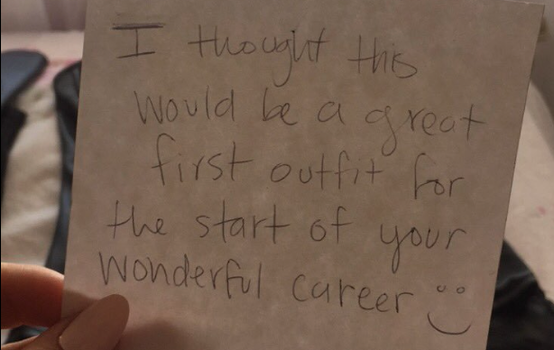 I thought this
would be a great
first outfit for
the start of your
wonderful career